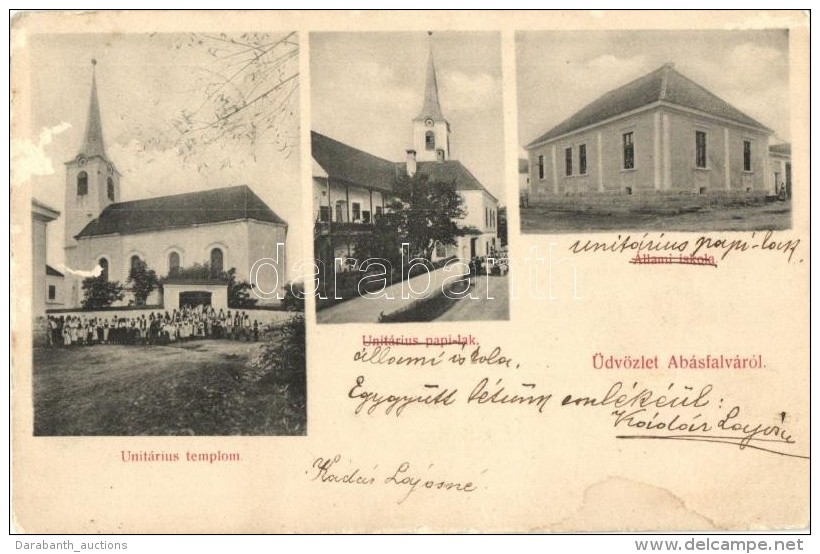 unitárius papi-lak
Állami iskola
darabanth
Unitárius papi-lak.
állami iskola.
Üdvözlet Abásfalváról.
Együgyütt létünk emlékéül:
Kádár Lajos
Unitárius templom.
Kádár Lajosné
Darabanth_auctions
www.delcampe.net